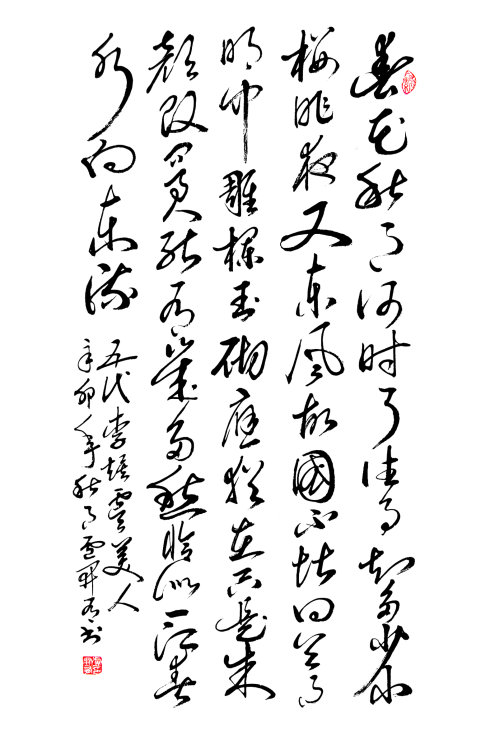 春花秋月何时了往事知多少小
楼昨夜又东風故國不堪回首月
明中雕欄玉砌應犹在只是朱
颜改问君能有幾多愁恰似一江春
水向东流
五代李煜虞美人
辛卯年秋月書